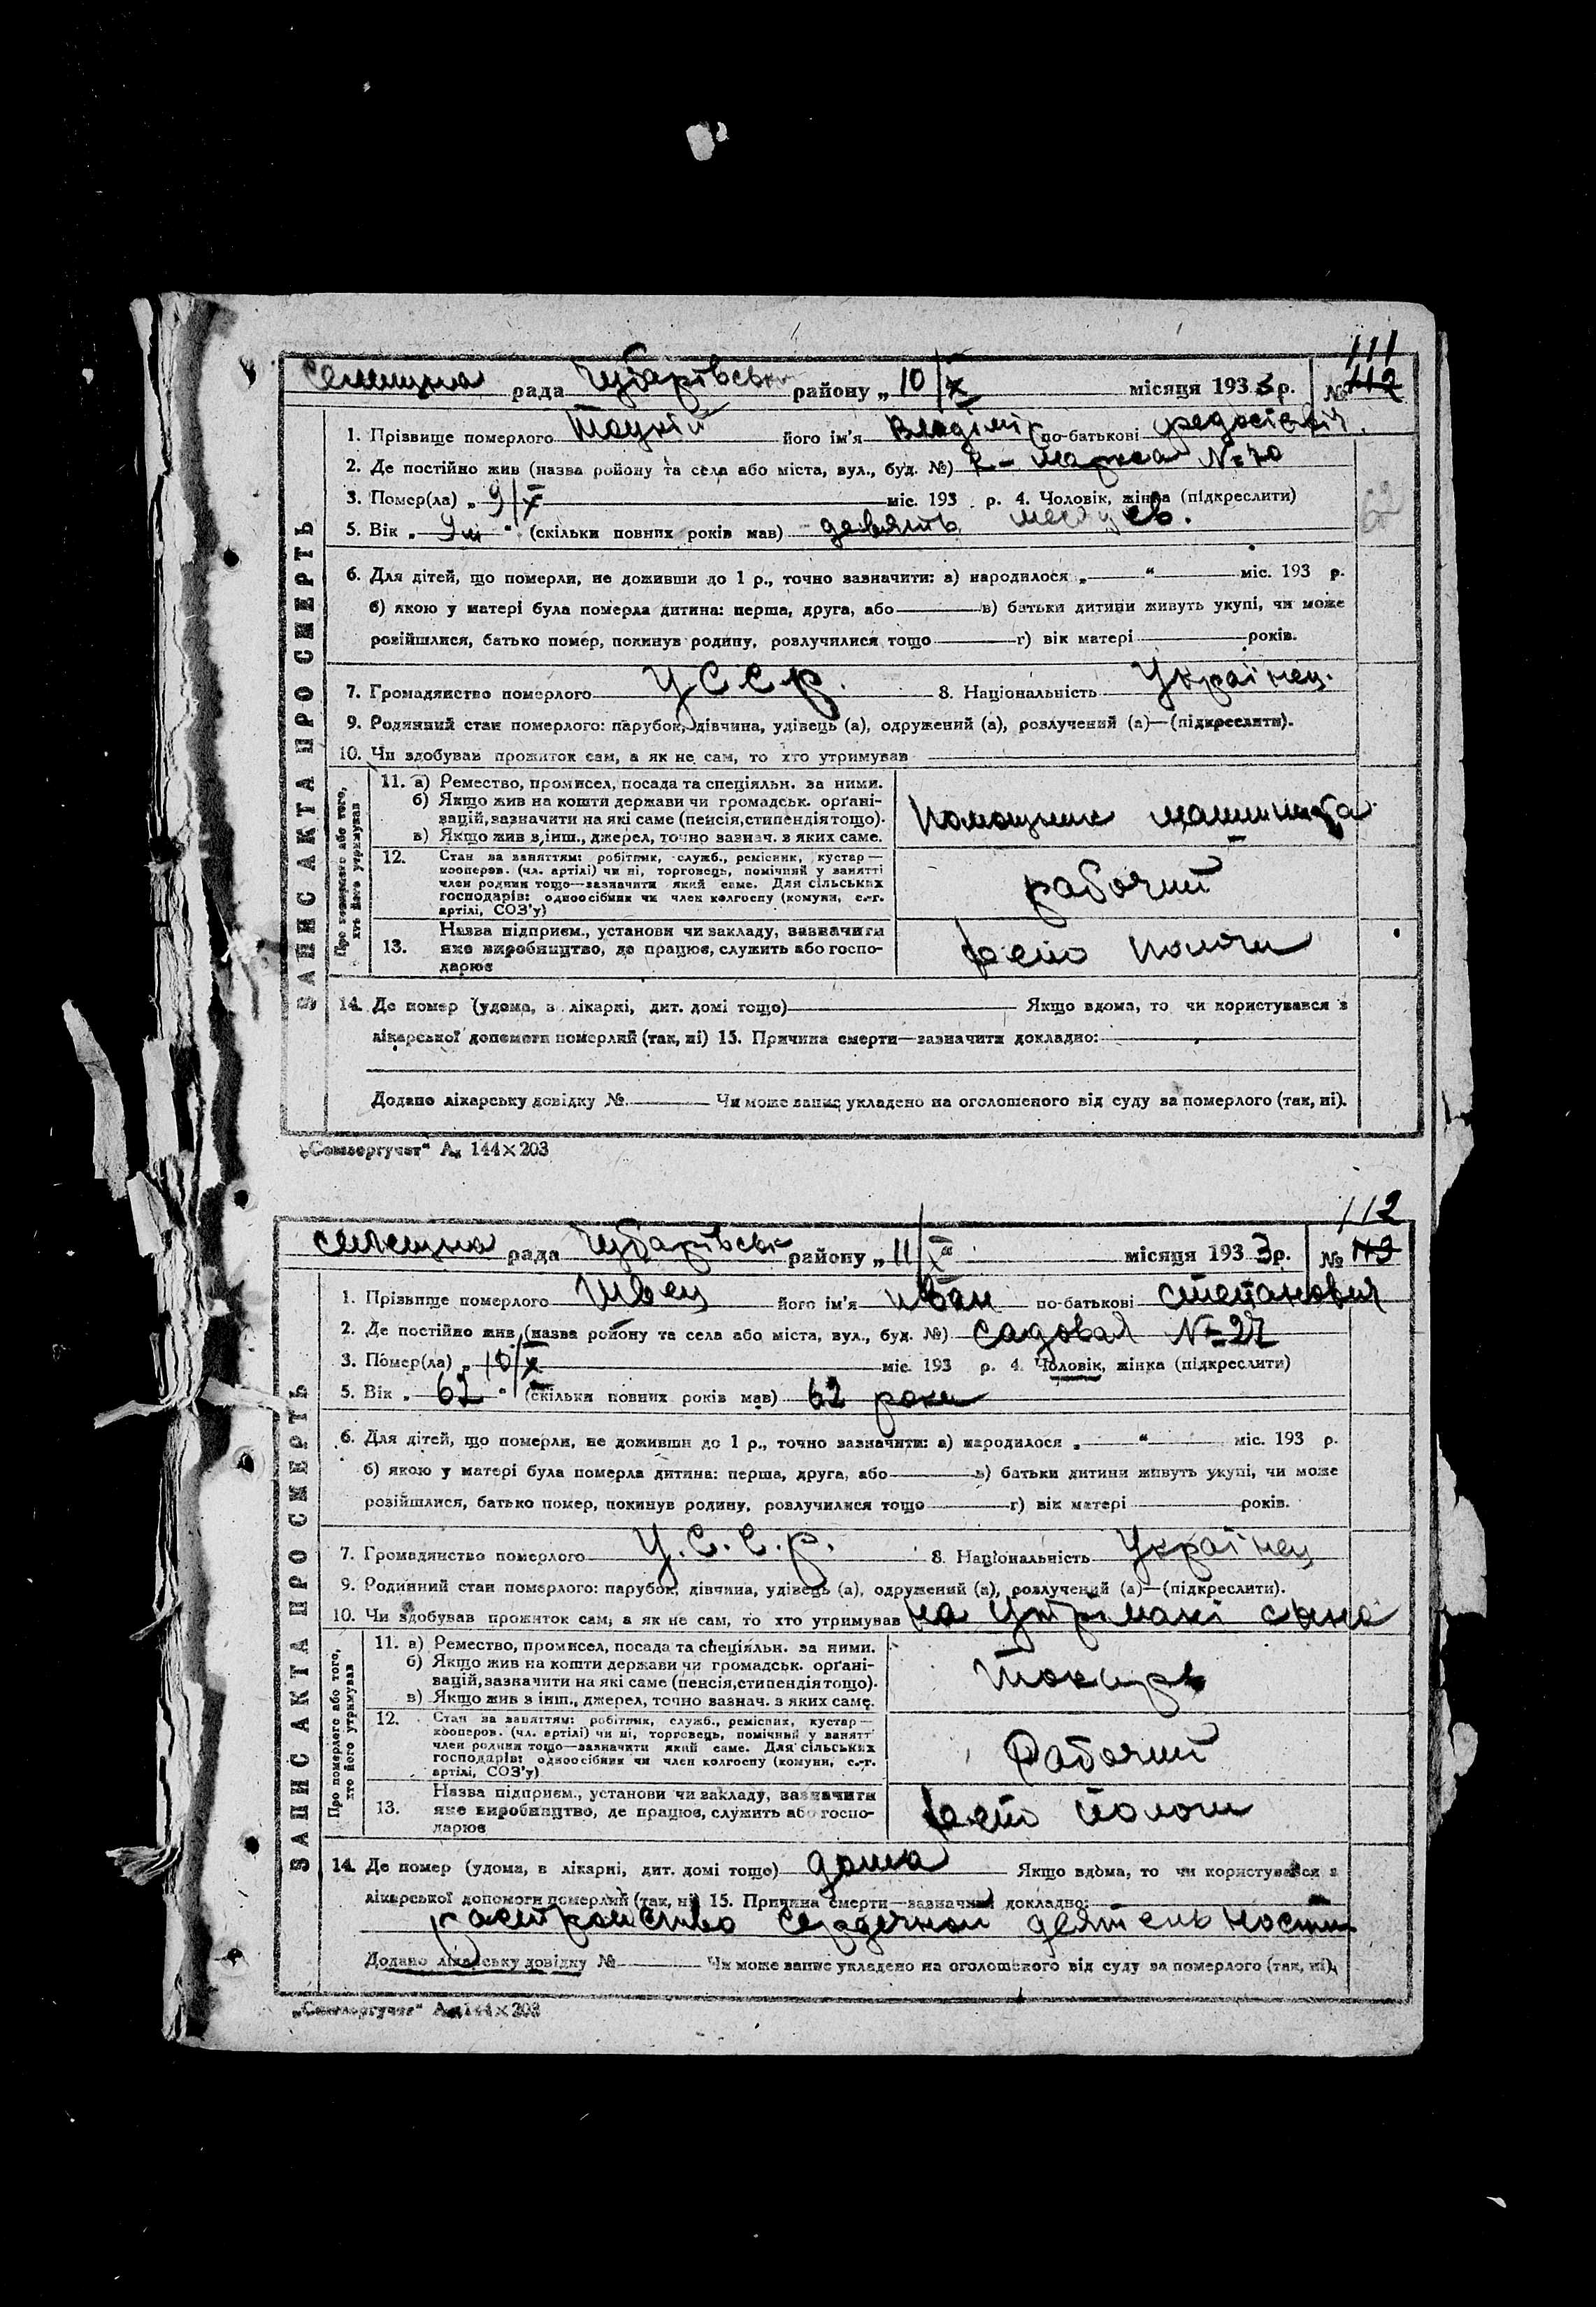 111
Селищна рада Чубарівськ району „ 10/X місяця 1933 р. № 112
ЗАПИС АКТА ПРО СМЕРТЬ
1. Прізвище померлого Тоцкій його ім'я Владімір по-батькові
2. Де постійно жив (назва району та села або міста, вул., буд. №) К-Маркса № 70
3. Помер(ла) „ 9/X міс. 193 р. 4. Чоловік, жінка (підкреслити)
5. Вік „ 9 м “ (скільки повних років мав) девять месяцев.
6. Для дітей, що померли, не доживши до 1 р., точно зазначити: а) народилося „ “ міс. 193 р.
б) якою у матері була померла дитина: перша, друга, або в) батьки дитини живуть укупі, чи може
розійшлися, батько помер, покинув родину, розлучилися тощо г) вік матері років.
7. Громадянство померлого У С С Р. 8. Національність Українец.
9. Родинний стан померлого: парубок, дівчина, удівець (а), одружений (а), розлучений (а)—(підкреслити).
10. Чи здобував прожиток сам, а як не сам, то хто утримував
Про померлого або того, хто його утримував
11. а) Ремество, промисел, посада та спеціяльн. за ними.
б) Якщо жив на кошти держави чи громадськ. орґані-
зацій, зазначити на які саме (пенсія, стипендія тощо).
в) Якщо жив з інш., джерел, точно зазнач. з яких саме.
Помощник машиниста
12. Стан за заняттям: робітник, служб., ремісник, кустар—
кооперов. (чл. артілі) чи ні, торговець, помічний у занятті
член родини тощо—зазначити який саме. Для сільських
господарів: одноосібник чи член колгоспу (комуни, с.-г.
артілі, СОЗ'у)
рабочий
13. Назва підприєм., установи чи закладу, зазначити
яке виробництво, де працює, служить або госпо-
дарює
Депо Пологи
14. Де помер (удома, в лікарні, дит. домі тощо) Якщо вдома, то чи користувався з
лікарської допомоги померлий (так, ні) 15. Причина смерти—зазначити докладно:
Додано лікарську довідку № Чи може запис укладено на оголошеного від суду за померлого (так, ні).
144×203
112
Селищна рада Чубарівськ району „ 11/X місяця 1933 р. № 113
ЗАПИС АКТА ПРО СМЕРТЬ
1. Прізвище померлого Швец його ім'я Иван по-батькові Степанович
2. Де постійно жив (назва району та села або міста, вул., буд. №) Садовая № 27
3. Помер(ла) „ 10/X міс. 193 р. 4. Чоловік, жінка (підкреслити)
5. Вік „ 62 “ (скільки повних років мав) 62 роки
6. Для дітей, що померли, не доживши до 1 р., точно зазначити: а) народилося „ “ міс. 193 р.
б) якою у матері була померла дитина: перша, друга, або в) батьки дитини живуть укупі, чи може
розійшлися, батько помер, покинув родину, розлучилися тощо г) вік матері років.
7. Громадянство померлого У.С.С.Р. 8. Національність Українец
9. Родинний стан померлого: парубок, дівчина, удівець (а), одружений (а), розлучений (а)—(підкреслити).
10. Чи здобував прожиток сам, а як не сам, то хто утримував на утрімані сина
Про померлого або того, хто його утримував
11. а) Ремество, промисел, посада та спеціяльн. за ними.
б) Якщо жив на кошти держави чи громадськ. орґані-
зацій, зазначити на які саме (пенсія, стипендія тощо).
в) Якщо жив з інш., джерел, точно зазнач. з яких саме.
Токарь
12. Стан за заняттям: робітник, служб., ремісник, кустар—
кооперов. (чл. артілі) чи ні, торговець, помічний у занятті
член родини тощо—зазначити який саме. Для сільських
господарів: одноосібник чи член колгоспу (комуни, с.-г.
артілі, СОЗ'у)
Рабочий
13. Назва підприєм., установи чи закладу, зазначити
яке виробництво, де працює, служить або госпо-
дарює
Депо Пологи
14. Де помер (удома, в лікарні, дит. домі тощо) дома Якщо вдома, то чи користувався з
лікарської допомоги померлий (так, ні) 15. Причина смерти—зазначити докладно:
расстройство сердечной деятельности
Додано лікарську довідку № Чи може запис укладено на оголошеного від суду за померлого (так, ні).
144×203